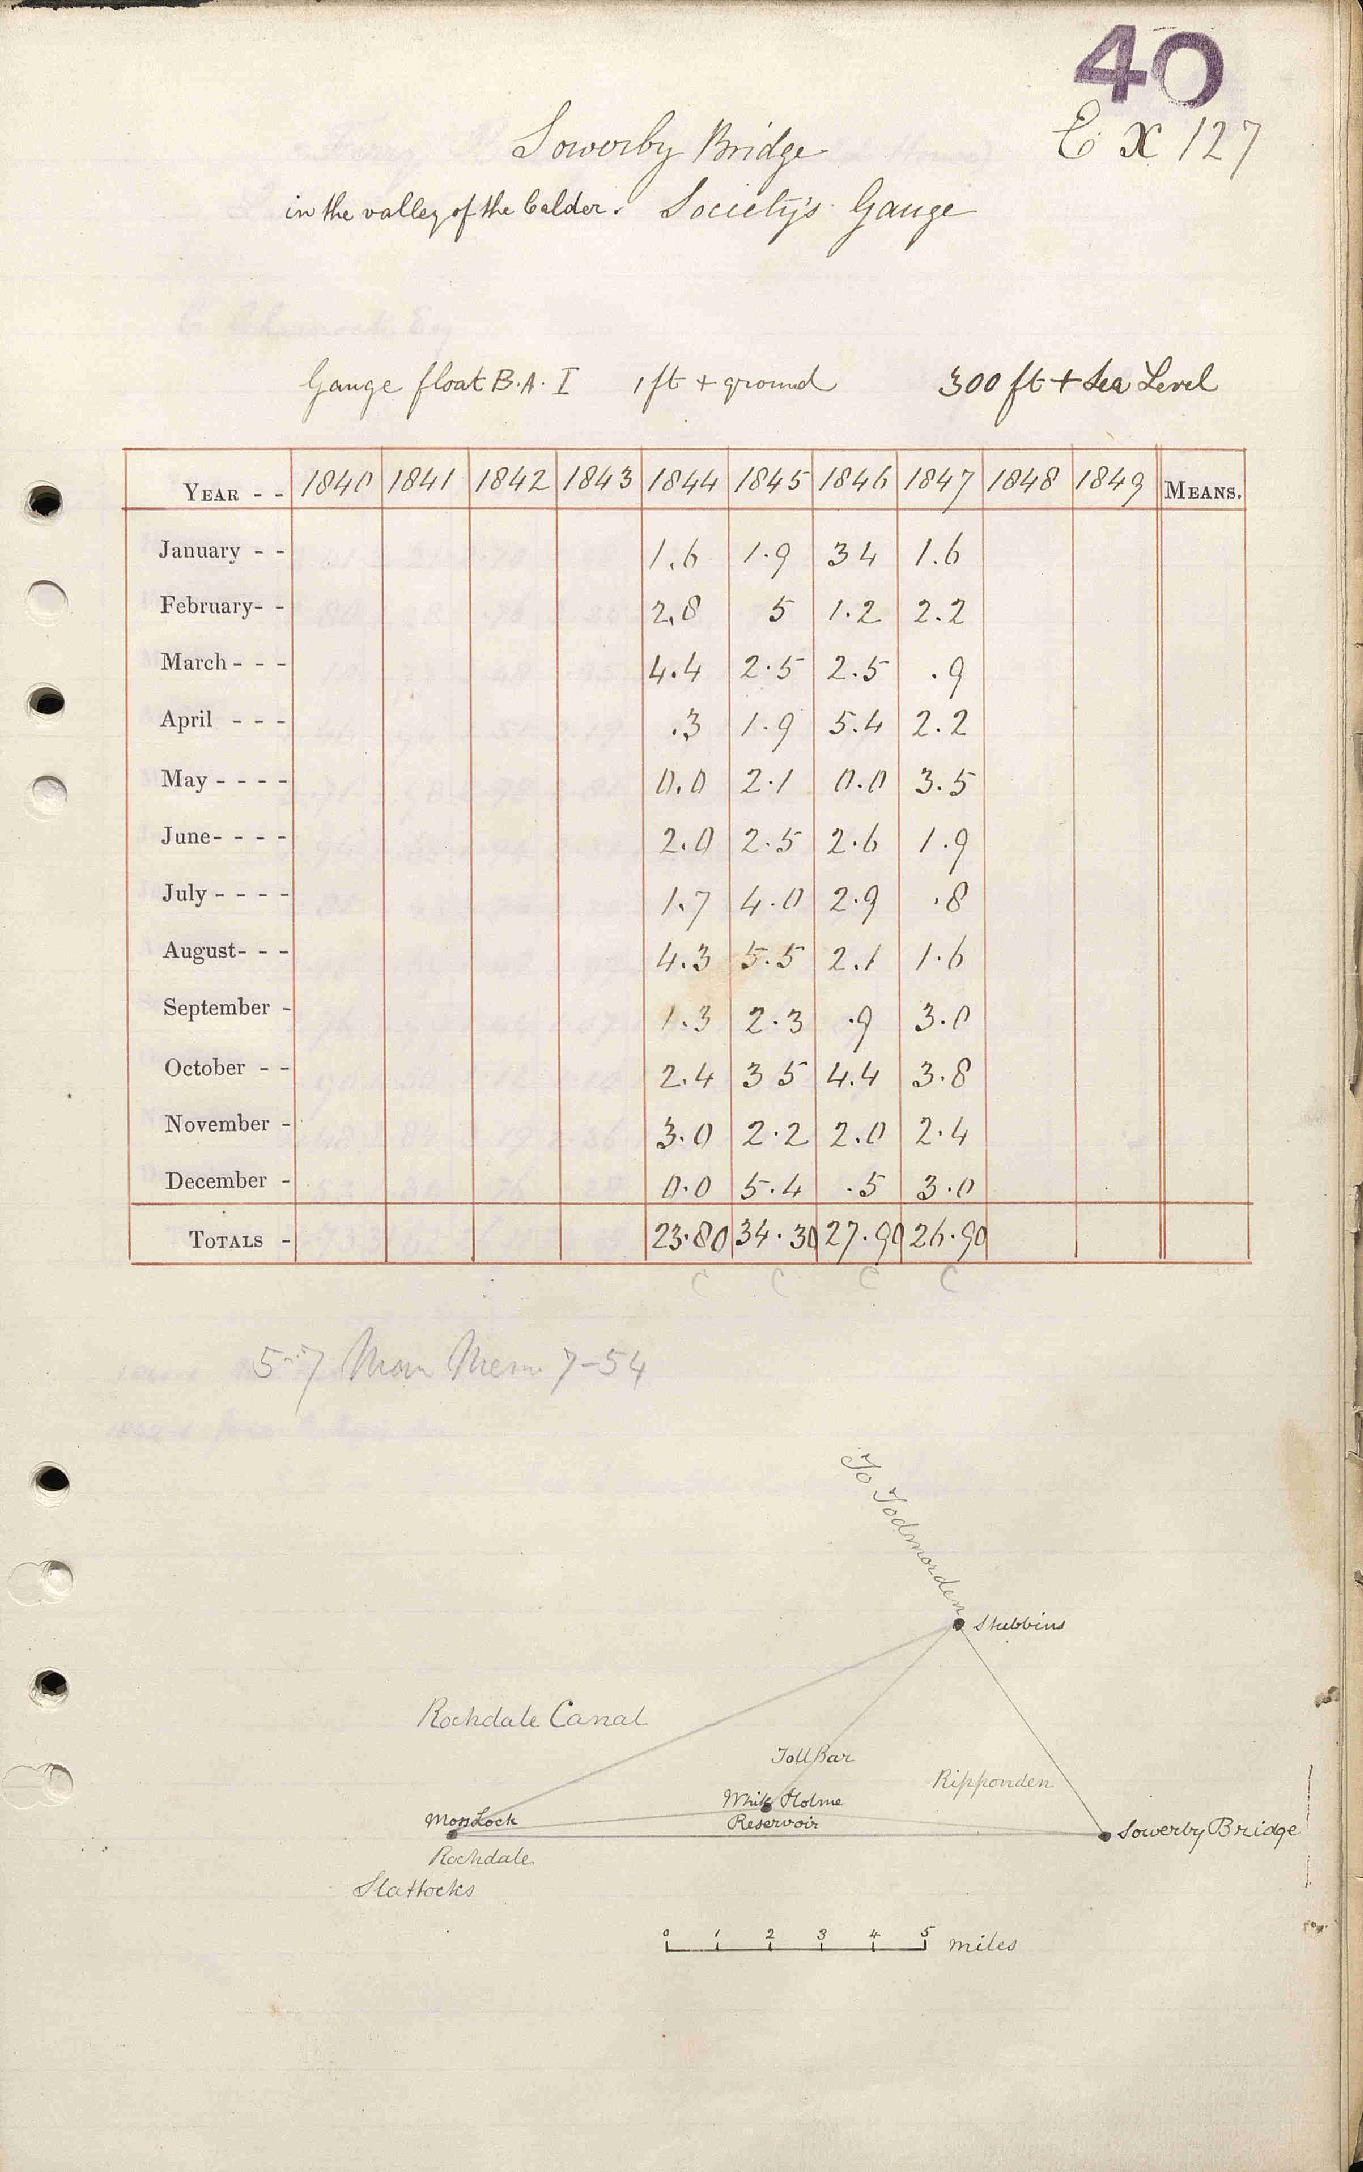 40
E X 127
Sowerby Bridge
in the valley of the Calder. Society's Gauge
Gauge float B.A. I 1 ft + ground 300 ft + Sea Level
YEAR - - 1840 1841 1842 1843 1844 1845 1846 1847 1848 1849 MEANS.
January - - 1.6 1.9 3 4 1.6
February- - 2.8 5 1.2 2.2
March - - - 4.4 2.5 2.5 .9
April - - - .3 1.9 5.4 2.2
May - - - - 0.0 2.1 0.0 3.5
June- - - - 2.0 2.5 2.6 1.9
July - - - - 1.7 4.0 2.9 .8
August- - - 4.3 5.5 2.1 1.6
September - 1.3 2.3 .9 3.0
October - - 2.4 3 5 4.4 3.8
November - 3.0 2.2 2.0 2.4
December - 0.0 5.4 .5 3.0
TOTALS - 23.80 34.30 27.90 26.90
C C C C
7-54
To Todmorden
Stubbins
Rochdale Canal
Toll Bar
Ripponden
White Holme
Reservoir
Moss Lock
Sowerby Bridge
Rochdale
Slattocks
0 1 2 3 4 5 miles